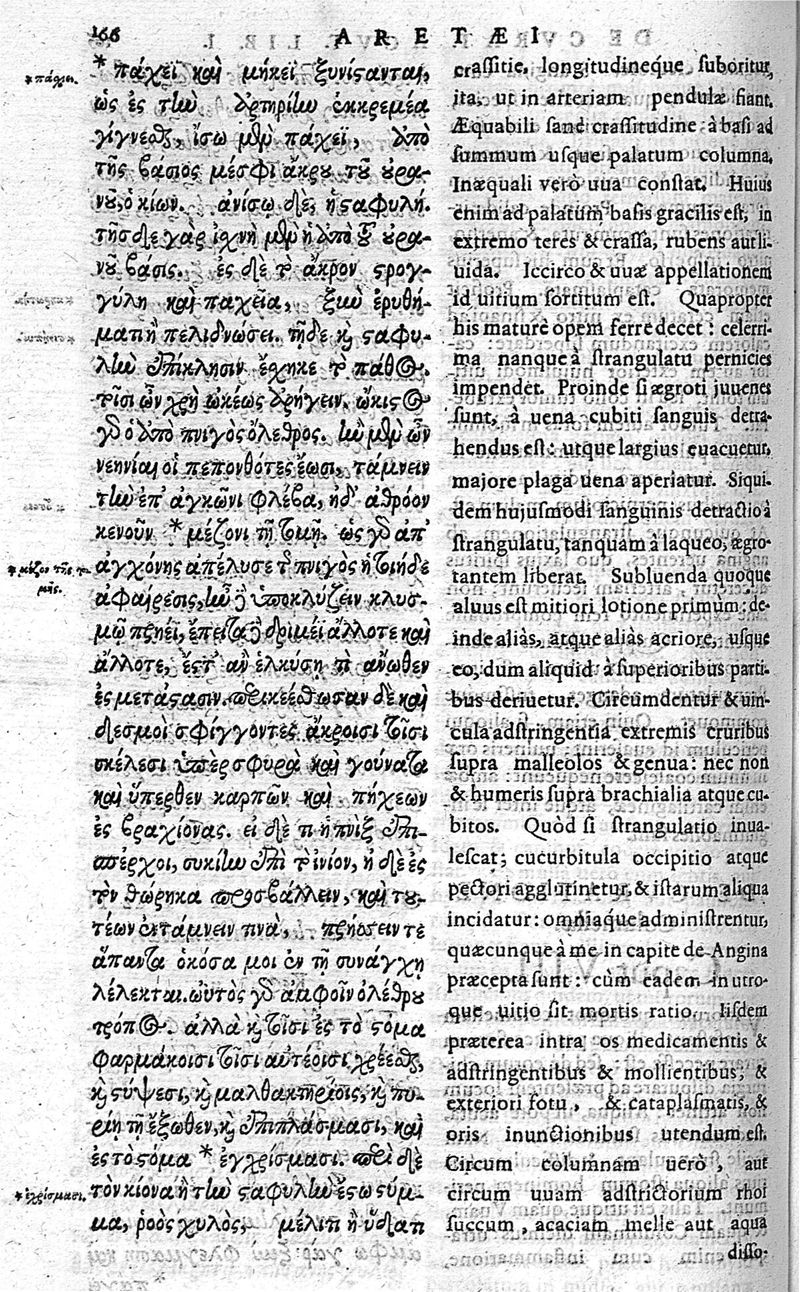 166
ARETÆI
* πάχεϊ καὶ μήκεϊ ξυνίςανται,
ὡς ἐς τὴν ἀρτηρίην ἐκκρεμέα
γίγνεσθ, ἴσω μὲν πάχεϊ, ἀπὸ
τῆς βάσιος μέσφι ἄκρου τοῦ οὐρα-
νοῦ, ὁ κίων. ἀνίσω δὲ, ἡ ςαφυλή.
τῆσδε γὰρ ἰχνὴ μὲν ἡ ἀπὸ τοῦ οὐρα-
νοῦ βάσις. ἐς δὲ τὸ ἄκρον ςρογ-
γύλη καὶ παχεῖα, ξὺν ἐρυθή-
ματι ἢ πελιδνώσει. τῇδε καὶ ςαφυ-
λὴν ἐπίκλησιν ἔσχηκε τὸ πάθος.
τοῖσι ὦν χρὴ ὠκέως ἀρήγειν. ὤκιςος
γὰρ ὁ ἀπὸ πνιγὸς ὄλεθρος. ἢν μὲν ὦν
νεηνίαι οἱ πεπονθότες ἔωσι, τάμνειν
τὴν ἐπ' ἀγκῶνι φλέβα, ἠδ' ἀθρόον
κενοῦν * μέζονι τῇ τομῇ. ὡς γὰρ ἀπ'
ἀγχόνης ἀπέλυσε τοῦ πνιγὸς ἡ τοιήδε
ἀφαίρεσις, ἢν δὲ ὑποκλύζειν κλυσ-
μῷ πρηεῖ, ἔπειτα δὲ δριμέϊ ἄλλοτε καὶ
ἄλλοτε, ἔςτ' ἂν ἑλκύσῃ τι ἄνωθεν
ἐς μετάςασιν. περικεέσθωσαν δὲ καὶ
δεσμοὶ σφίγγοντες ἄκροισι τοῖσι
σκέλεσι ὑπὲρ σφυρὰ καὶ γούνατα
καὶ ὕπερθεν καρπῶν καὶ πήχεων
ἐς βραχίονας. εἰ δέ τι ἡ πνὶξ ἐπι-
σπέρχοι, σικύην ἐπὶ τὸ ἰνίον, ἠδὲ ἐς
τὸν θώρηκα προσβάλλειν, καὶ του-
τέων ἐκτάμνειν τινὰ, πρήσσειν τε
ἅπαντα ὁκόσα μοι ἐν τῇ συνάγχῃ
λέλεκται. ὡυτὸς γὰρ ἀμφοῖν ὀλέθρου
τρόπος. ἀλλὰ καὶ τοῖσι ἐς τὸ ςόμα
φαρμάκοισι τοῖσι αὐτέοισι χρέεσθ,
καὶ ςύψεσι, καὶ μαλθακτηρίοις, καὶ πυ-
ρίῃ τῇ ἔξωθεν, καὶ ἐπιπλάσμασι, καὶ
ἐς τὸ ςόμα * ἐγχρίσμασι. περὶ δὲ
τὸν κίονα ἢ τὴν ςαφυλὴν ἔςω σύμ-
μα, ῥοὸς χυλὸς, μέλιτι ἢ ὕδατι
* πάχει.
* μέζον τῆς το-
μῆς.
* ἐγχρίσμασι.
crassitie, longitudineque suboritur,
ita, ut in arteriam pendulæ fiant.
Æquabili sanè crassitudine à basi ad
summum usque palatum columna.
Inæquali verò uua constat. Huius
enim ad palatum basis gracilis est, in
extremo teres & crassa, rubens aut li-
uida. Iccirco & uuæ appellationem
id uitium sortitum est. Quapropter
his maturè opem ferre decet: celerri-
ma nanque à strangulatu pernicies
impendet. Proinde si ægroti juuenes
sunt, à uena cubiti sanguis detra-
hendus est: utque largius euacuetur,
majore plaga uena aperiatur. Siqui-
dem hujusmodi sanguinis detractio à
strangulatu, tanquam à laqueo, ægro-
tantem liberat. Subluenda quoque
aluus est mitiori lotione primùm: de-
inde aliàs, atque aliàs acriore, usque
eo, dum aliquid à superioribus parti-
bus deriuetur. Circumdentur & uin-
cula adstringentia extremis cruribus
supra malleolos & genua: nec non
& humeris suprà brachialia atque cu-
bitos. Quòd si strangulatio inua-
lescat; cucurbitula occipitio atque
pectori agglutinetur, & istarum aliqua
incidatur: omniaque administrentur,
quæcunque à me in capite de Angina
præcepta sunt: cùm eadem in utro-
que uitio sit mortis ratio. Iisdem
præterea intra os medicamentis &
adstringentibus & mollientibus, &
exteriori fotu, & cataplasmatis, &
oris inunctionibus utendum est.
Circum columnam uerò, aut
circum uuam adstrictorium rhoi
succum, acaciam melle aut aqua
disso-